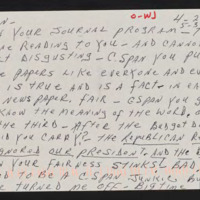 O-WJ 4/
N YOUR JOURNAL PROGRAM - T
E READING TO YOU - AND CANNOT
T DISGUSTING - C-SPAN YOU PU
E PAPERS LIKE EVERYONE AND EV
IS TRUE AND IS A FACT - IN EA
NEWSPAPER, FAIR - CSPAN YOU D
KNOW THE MEANING OF THE WORD, O
THE THIRD - AFTER THE DEBGOT DI
DID YOU CARRY? - THE REPUBLICAN R
IGNORED OUR PRESIDENT AND THE D
N YOUR FAIRNESS STINKS! BAD
D TO BE A C SPAN JUNKIES BU
E TURNED ME OFF - BIG TIME